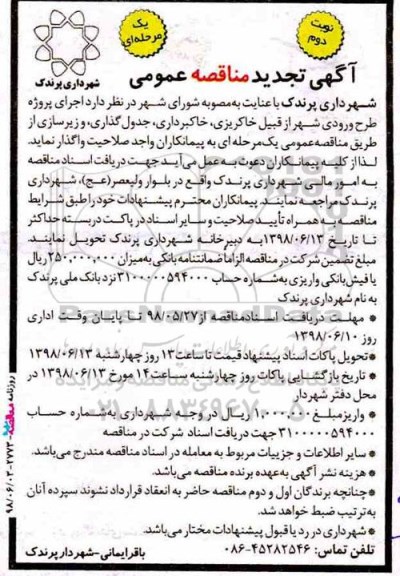 نوبت دوم
یک مرحله‌ای
شهرداری پرندک
آگهی تجدید مناقصه عمومی
شهرداری پرندک با عنایت به مصوبه شورای شهر در نظر دارد اجرای پروژه
طرح ورودی شهر از قبیل خاکریزی، خاکبرداری، جدول‌گذاری، و زیرسازی از
طریق مناقصه عمومی یک مرحله ای به پیمانکاران واجد صلاحیت واگذار نماید.
لذا از کلیه پیمانکاران دعوت به عمل می‌آید جهت دریافت اسناد مناقصه
به امور مالی شهرداری پرندک واقع در بلوار ولیعصر(عج)، شهرداری
پرندک مراجعه نمایند. پیمانکاران محترم پیشنهادات خود را طبق شرایط
مناقصه به همراه تأیید صلاحیت و سایر اسناد در پاکت دربسته حداکثر
تا تاریخ ۱۳۹۸/۰۶/۱۳ به دبیرخانه شهرداری پرندک تحویل نمایند.
مبلغ تضمین شرکت در مناقصه الزاماً ضمانتنامه بانکی به میزان ۲۵۰,۰۰۰,۰۰۰ ریال
یا فیش بانکی واریزی به شماره حساب ۳۱۰۰۰۰۰۵۹۴۰۰۰ نزد بانک ملی پرندک
به نام شهرداری پرندک
* مهلت دریافت اسناد مناقصه از ۹۸/۰۵/۲۷ تا پایان وقت اداری
روز ۱۳۹۸/۰۶/۱۰
*تحویل پاکات اسناد پیشنهاد قیمت تا ساعت ۱۳ روز چهارشنبه ۱۳۹۸/۰۶/۱۳
* تاریخ بازگشایی پاکات روز چهارشنبه ساعت ۱۴ مورخ ۱۳۹۸/۰۶/۱۳ در
محل دفتر شهردار
* واریز مبلغ ۱,۰۰۰,۰۰۰ ریال در وجه شهرداری به شماره حساب
۳۱۰۰۰۰۰۵۹۴۰۰۰ جهت دریافت اسناد شرکت در مناقصه
* سایر اطلاعات و جزییات مربوط به معامله در اسناد مناقصه مندرج می‌باشد.
* هزینه نشر آگهی به عهده برنده مناقصه می‌باشد.
* چنانچه برندگان اول و دوم مناقصه حاضر به انعقاد قرارداد نشوند سپرده آنان
به ترتیب ضبط خواهد شد.
* شهرداری در رد یا قبول پیشنهادات مختار می‌باشد.
تلفن تماس: ۴۵۲۸۲۵۴۶-۰۸۶
باقر ایمانی - شهردار پرندک
روزنامه مناقصه - ۲۷۷۳ - ۹۸/۰۶/۰۳
۰۲۱-۸۸۳۴۹۶۷۰-۵